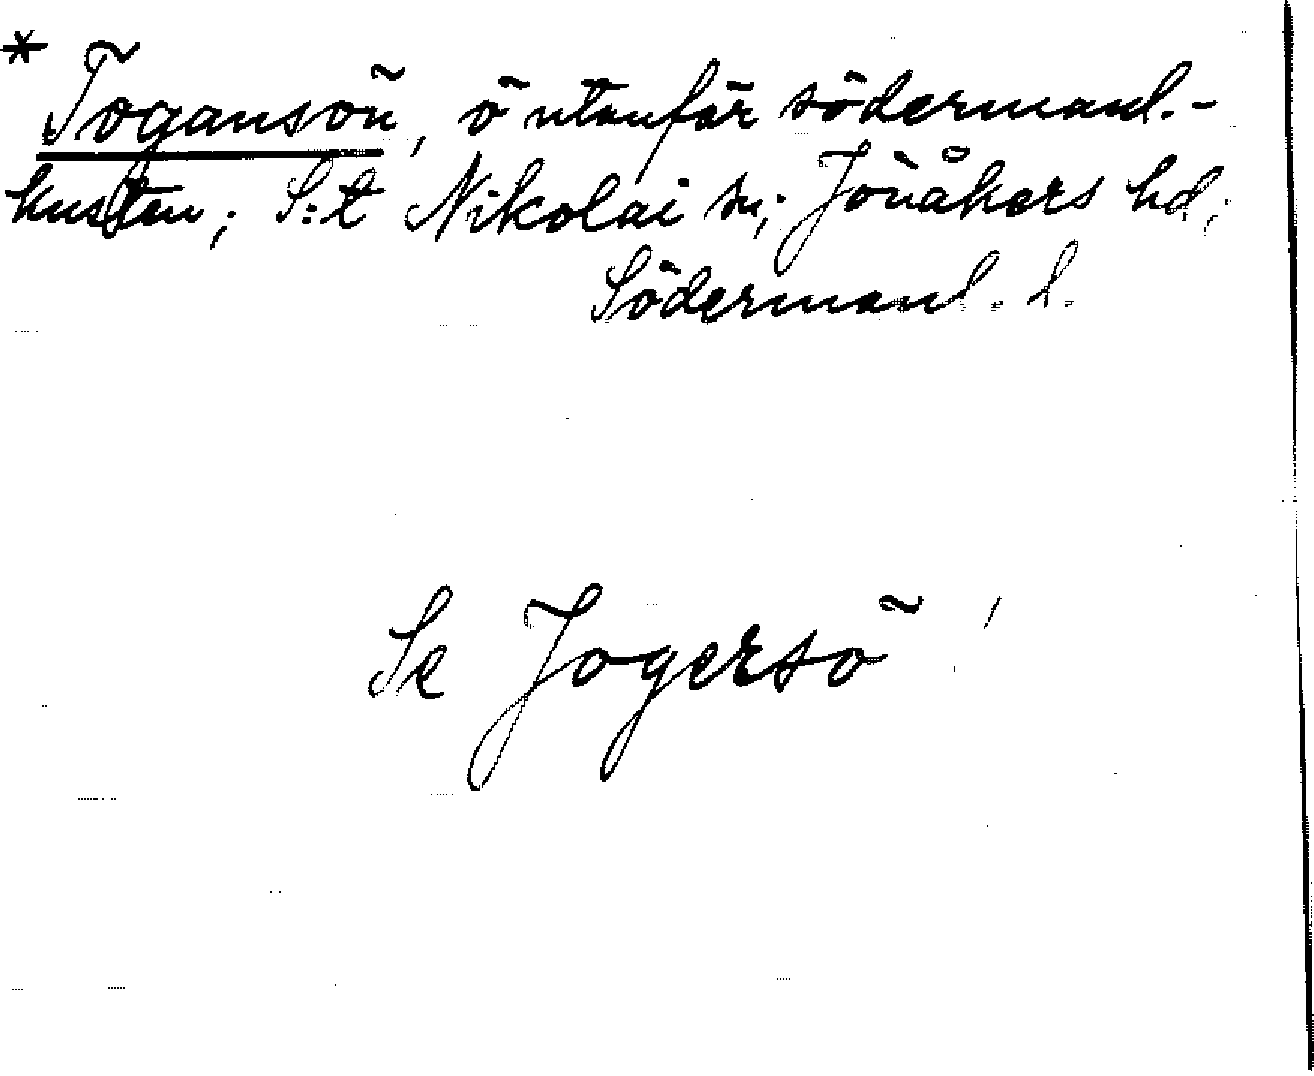 * Togansön, ö utanför södermanl.-
kusten; S:t Nikolai sn; Jönåkers hd;
Södermanl. l.
Se Jogersö